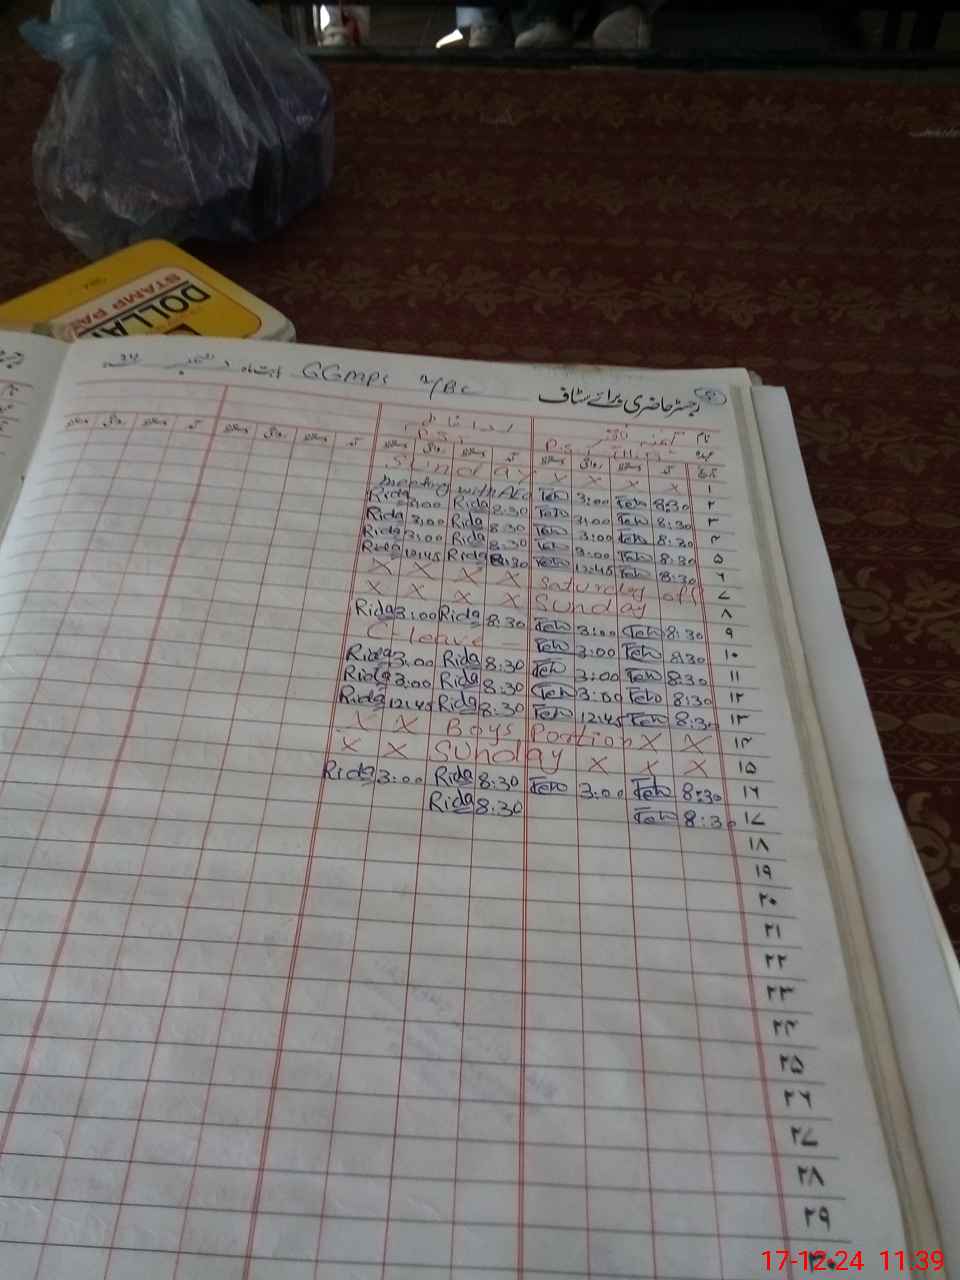 DOLLA
STAMP PA
رجسٹر حاضری برائے سٹاف GGMPS
نام
P.S.T
تاریخ
Sunday x x x x ۱
meeting with AEO Feh 3:00 Feh 8:30 ۲
Rida 3:00 Rida 8:30 Feh 3:00 Feh 8:30 ۳
Rida 3:00 Rida 8:30 Feh 3:00 Feh 8:30 ۴
Rida 3:00 Rida 8:30 Feh 3:00 Feh 8:30 ۵
Rida 12:45 Rida 8:30 Feh 12:45 Feh 8:30 ۶
x x x x Saturday off ۷
x x x x Sunday ۸
Rida 3:00 Rida 8:30 Feh 3:00 Feh 8:30 ۹
C-leave Feh 3:00 Feh 8:30 ۱۰
Rida 3:00 Rida 8:30 Feh 3:00 Feh 8:30 ۱۱
Rida 3:00 Rida 8:30 Feh 3:00 Feh 8:30 ۱۲
Rida 12:45 Rida 8:30 Feh 12:45 Feh 8:30 ۱۳
x x Boys Portion x x ۱۴
x x Sunday x x x ۱۵
Rida 3:00 Rida 8:30 Feh 3:00 Feh 8:30 ۱۶
Rida 8:30 Feh 8:30 ۱۷
۱۸
۱۹
۲۰
۲۱
۲۲
۲۳
۲۴
۲۵
۲۶
۲۷
۲۸
۲۹
۳۰
17-12-24 11:39